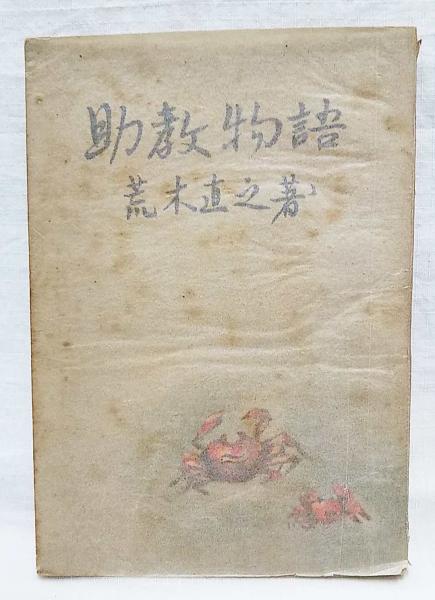 助教物語
荒木直之著